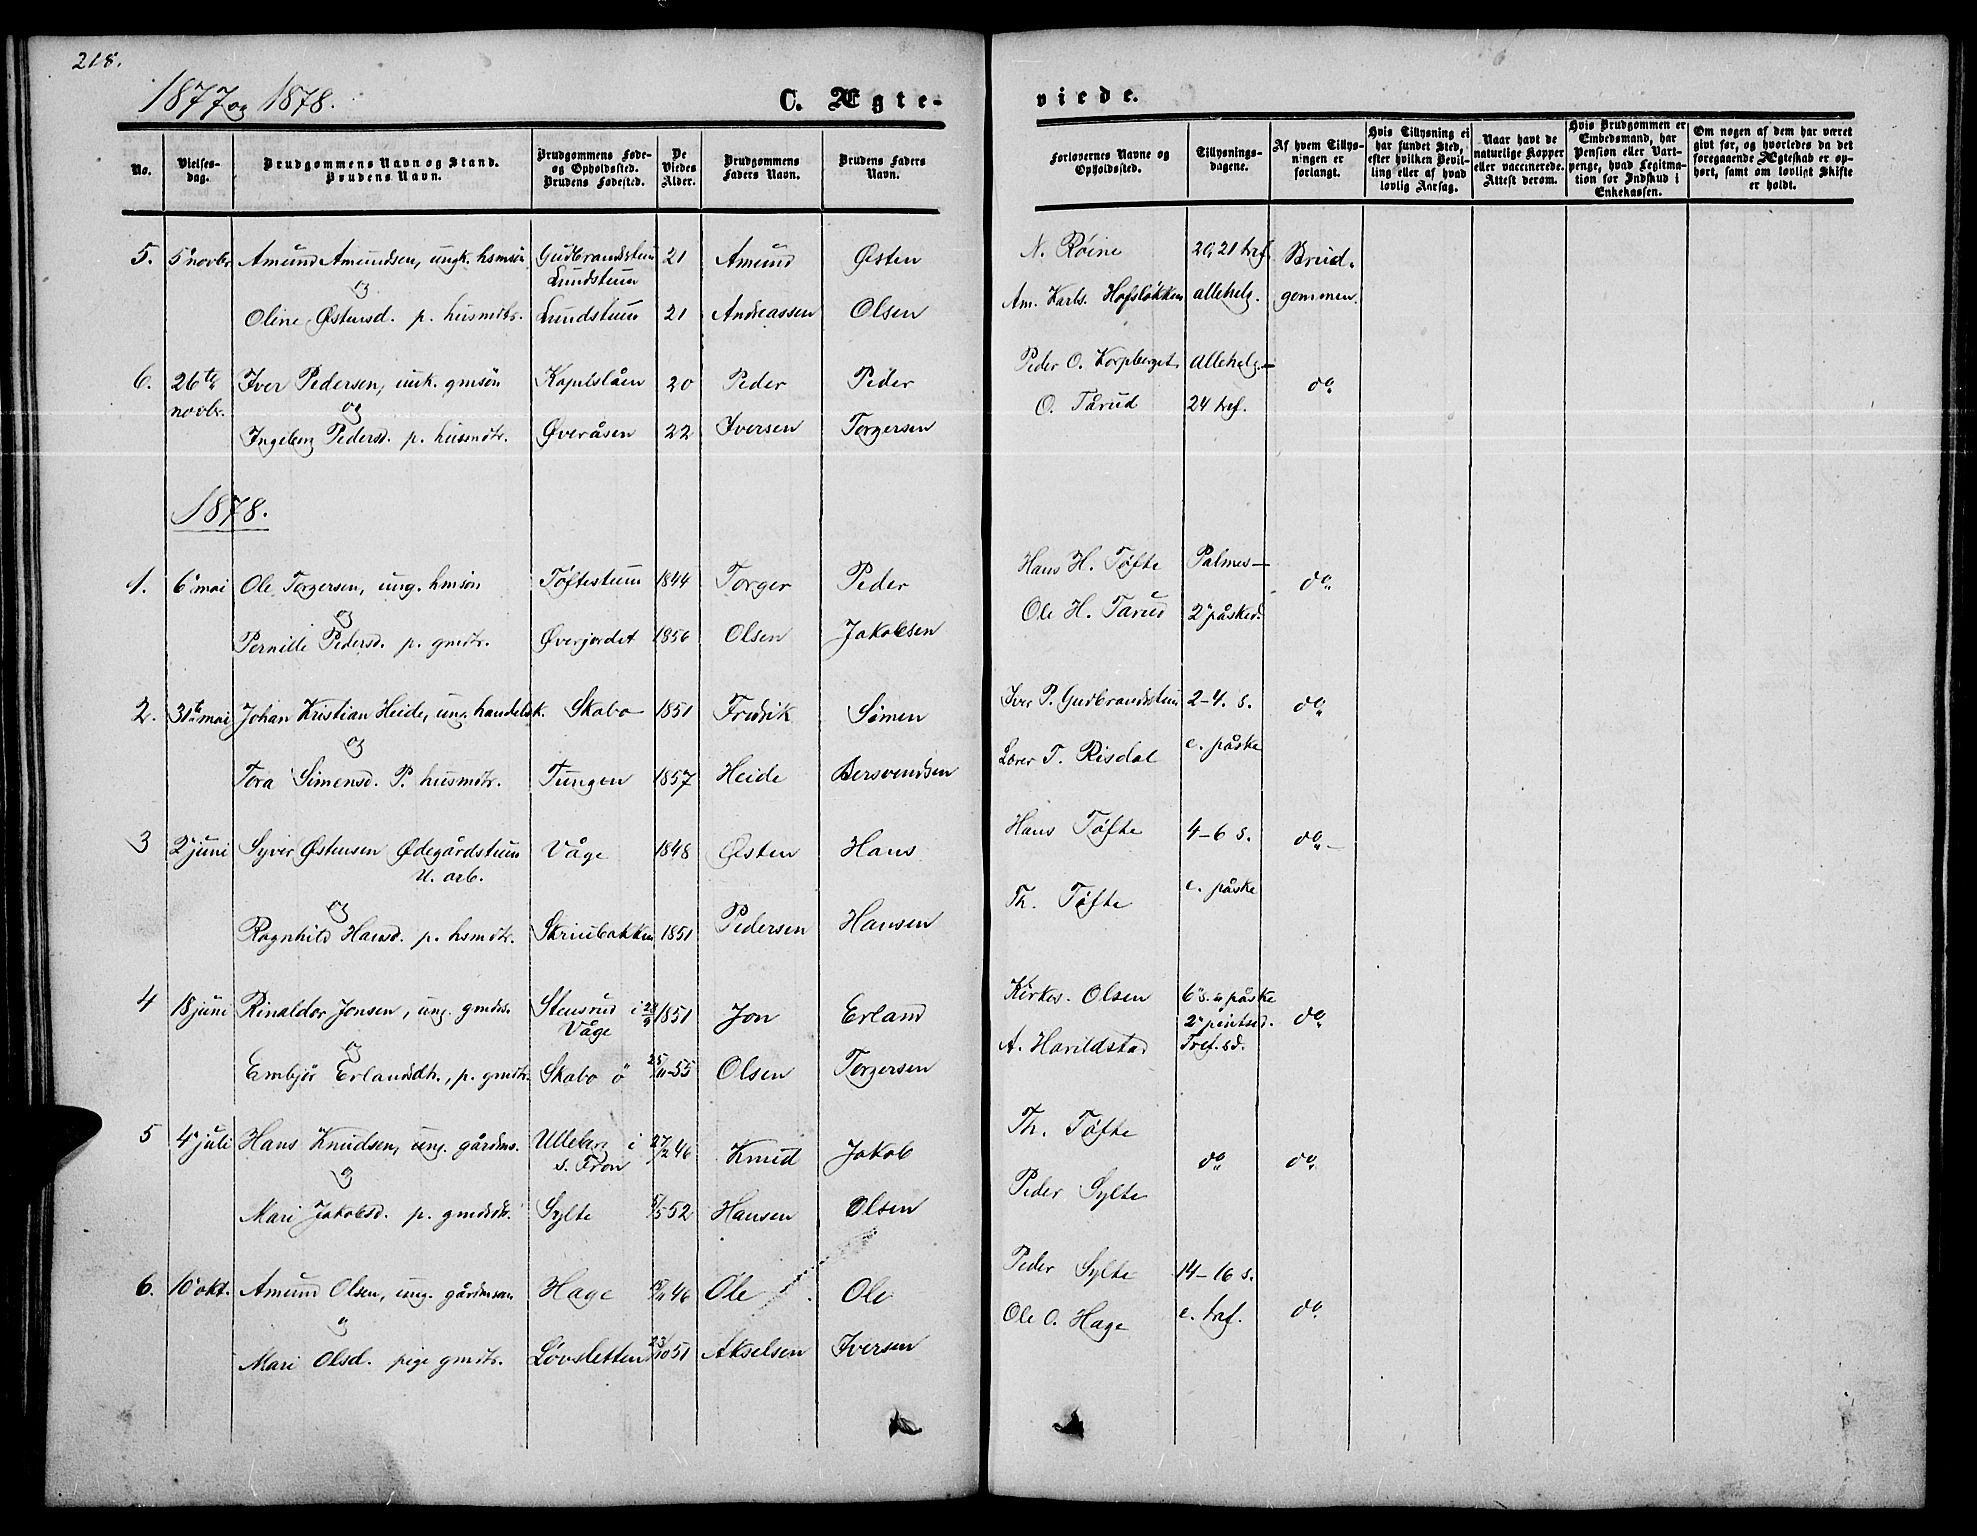 218.
1877 og 1878.
C. Ægte-
viede.
No.
Vielses-
dag.
Brudgommens Navn og Stand.
Brudens Navn.
Brudgommens Føde-
og Opholdssted.
Brudens Fødested.
De
Viedes
Alder.
Brudgommens
Faders Navn.
Brudens Faders
Navn.
Forlovernes Navne og
Opholdssted.
Tillysnings-
dagene.
Af hvem Tillys-
ningen er
forlangt.
Hvis Tillysning ei
har fundet Sted,
efter hvilken Bevil-
ling eller af hvad
lovlig Aarsag.
Naar havt de
naturlige Kopper
eller vaccinerede.
Attest derom.
Hvis Brudgommen er
Embedsmand, har
Pension eller Vart-
penge, hvad Legitma-
tion for Indskud i
Enkekassen.
Om nogen af dem har været
givt før, og hvorledes da det
foregaaende Ægteskab er op-
hørt, samt om lovligt Skifte
er holdt.
5. 5 novbr Amund Amundsen, ungk. hsmsøn Gudbrandstuen 21 Amund Østen N. Røine 20, 21 tref. Brud-
og Lundstuen
Oline Østensd. p. husmdtr. Lundstuen 21 Andreassen Olsen Am. Karls. Hofsløkken allehelg. gommen.
6. 26te Iver Pedersen, unk. gmsøn Kapelslåen 20 Peder Peder Peder O. Korpberget allehelg. do
novbr. og
Ingeborg Pedersd. p. husmdtr. Øveråsen 22 Iversen Torgersen O. Tårud 24 tref.
1878.
1. 6 mai Ole Torgersen, ung. hmsøn Tøftestuen 1844 Torger Peder Hans H. Tøfte Palmes- do
og
Pernille Pedersd. p. gmdtr. Øverjordet 1856 Olsen Jakobsen Ole H. Tårud 2 påsked.
2. 31te mai Johan Kristian Heide, ung. handelsk. Skabo 1851 Fredrik Simen Iver P. Gudbrandstuen 2-4. s. do
og
Tora Simensd. P. husmdtr. Tungen 1857 Heide Bersvendsen Lærer T. Risdal e. påske
3 2 juni Syver Østensen Ødegårdstuen Våge 1848 Østen Hans Hans Tøfte 4-6 s. do
U. arb.
og
Ragnhild Hansd. p. hsmdtr. Skriubakken 1851 Pedersen Hansen Th. Tøfte e. påske
4 18 juni Rinaldor Jonsen, ung. gmds. Stensrud i 1851 Jon Erland Kirkes. Olsen 6 s. e påske
Våge 2 pintsed. do
og
Embjør Erlandsdtr., p. gmdtr. Skabo ø 25/11-55 Olsen Torgersen A. Harildstad Tref. sd.
5 4 juli Hans Knudsen, ung. gårdms. Ulleberg i 27/2 46 Knud Jakob Th. Tøfte
s. Fron do do
og
Mari Jakobsd. p. gmdsdtr. Sylte 5/5 52 Hansen Olsen Peder Sylte
6. 10 okt. Amund Olsen, ung. gårdmsøn Hage 46 Ole Ole Peder Sylte 14-16 s.
og do
Mari Olsd. pige gmdtr. Løvsletten 23/10 51 Akselsen Iversen Ole O. Hage e. tref.